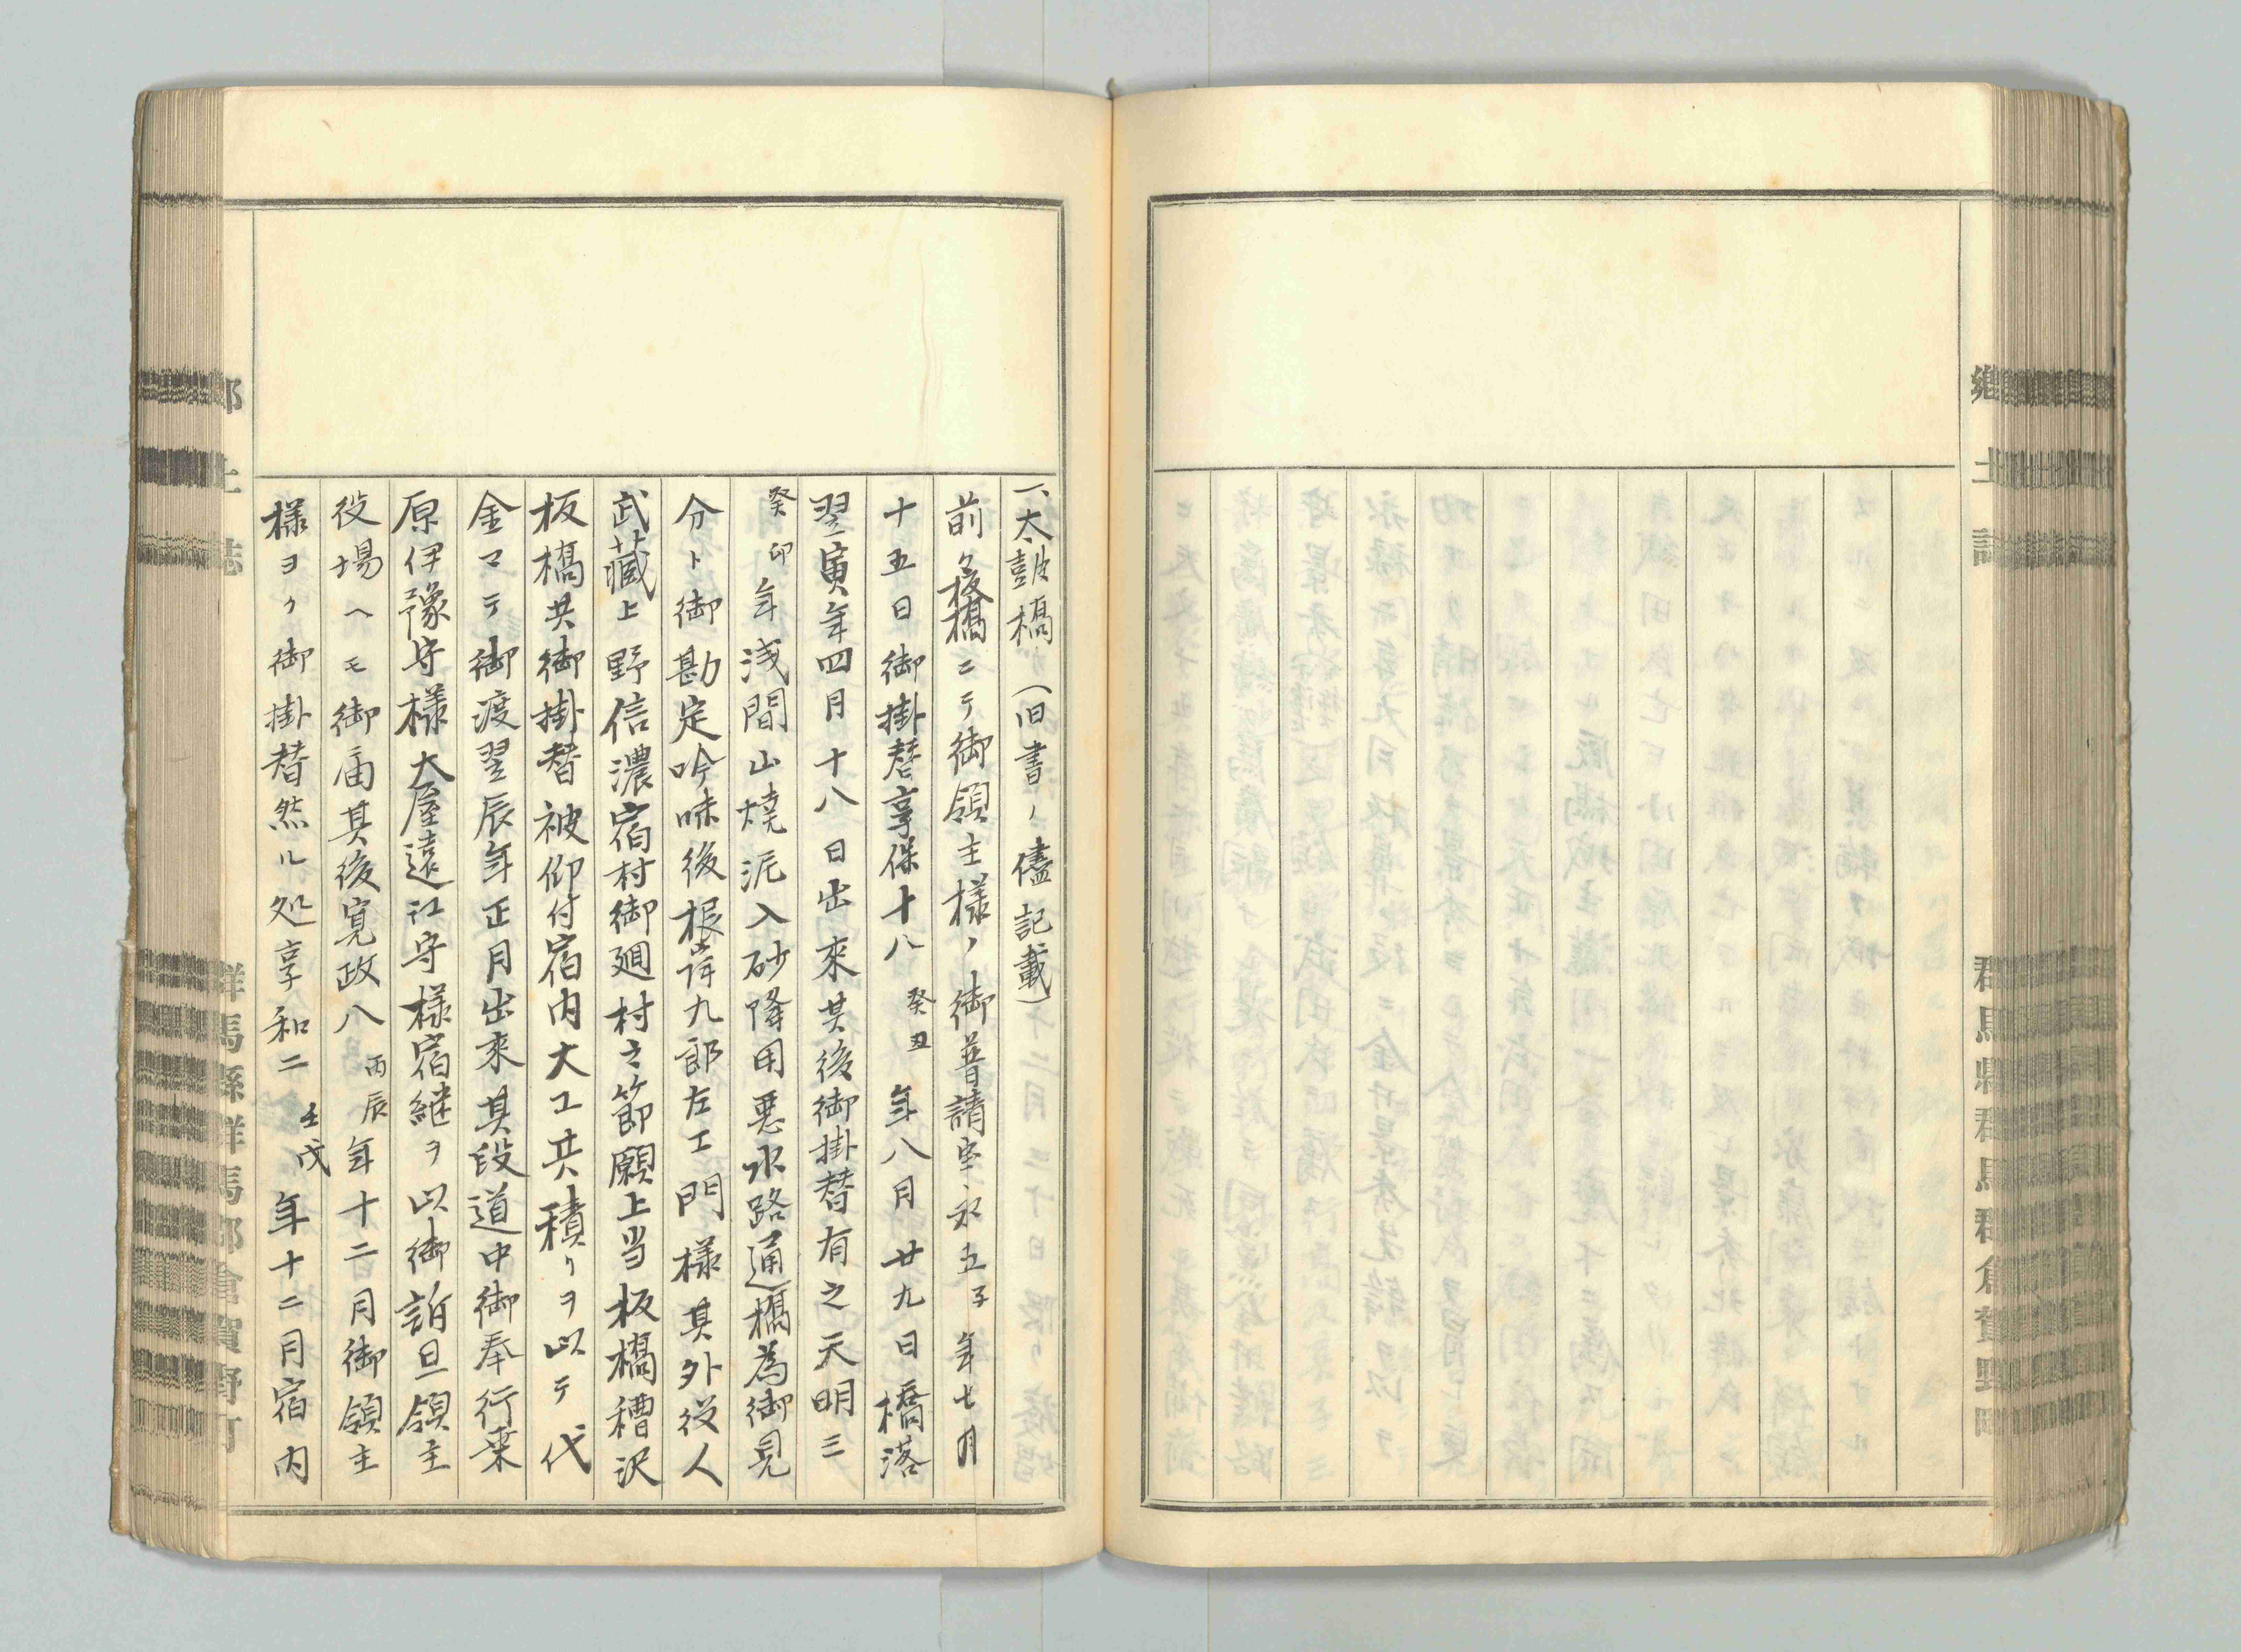 鄉土誌
群馬縣群馬郡倉賀野町
一、太鼓橋（旧書ノ儘記載）
前々板橋ニテ御領主様ノ御普請宝永五子年七月
十五日御掛替享保十八癸丑年八月廿九日橋落
翌寅年四月十八日出來其後御掛替有之天明三
癸卯年浅間山焼泥入砂降用悪水路通橋為御見
分ト御勘定吟味役根岸九郎左エ門様其外役人
武藏上野信濃宿村御廻村之節願上当板橋穭沢
板橋共御掛替被仰付宿内大工共積リヲ以テ代
金マテ御渡翌辰年正月出來其段道中御奉行桒
原伊豫守様大屋遠江守様宿継ヲ以御訴旦領主
役場ヘモ御届其後寛政八丙辰年十二月御領主
様ヨリ御掛替然ル処享和二壬戌年十二月宿内
郷土誌
群馬縣群馬郡倉賀野町